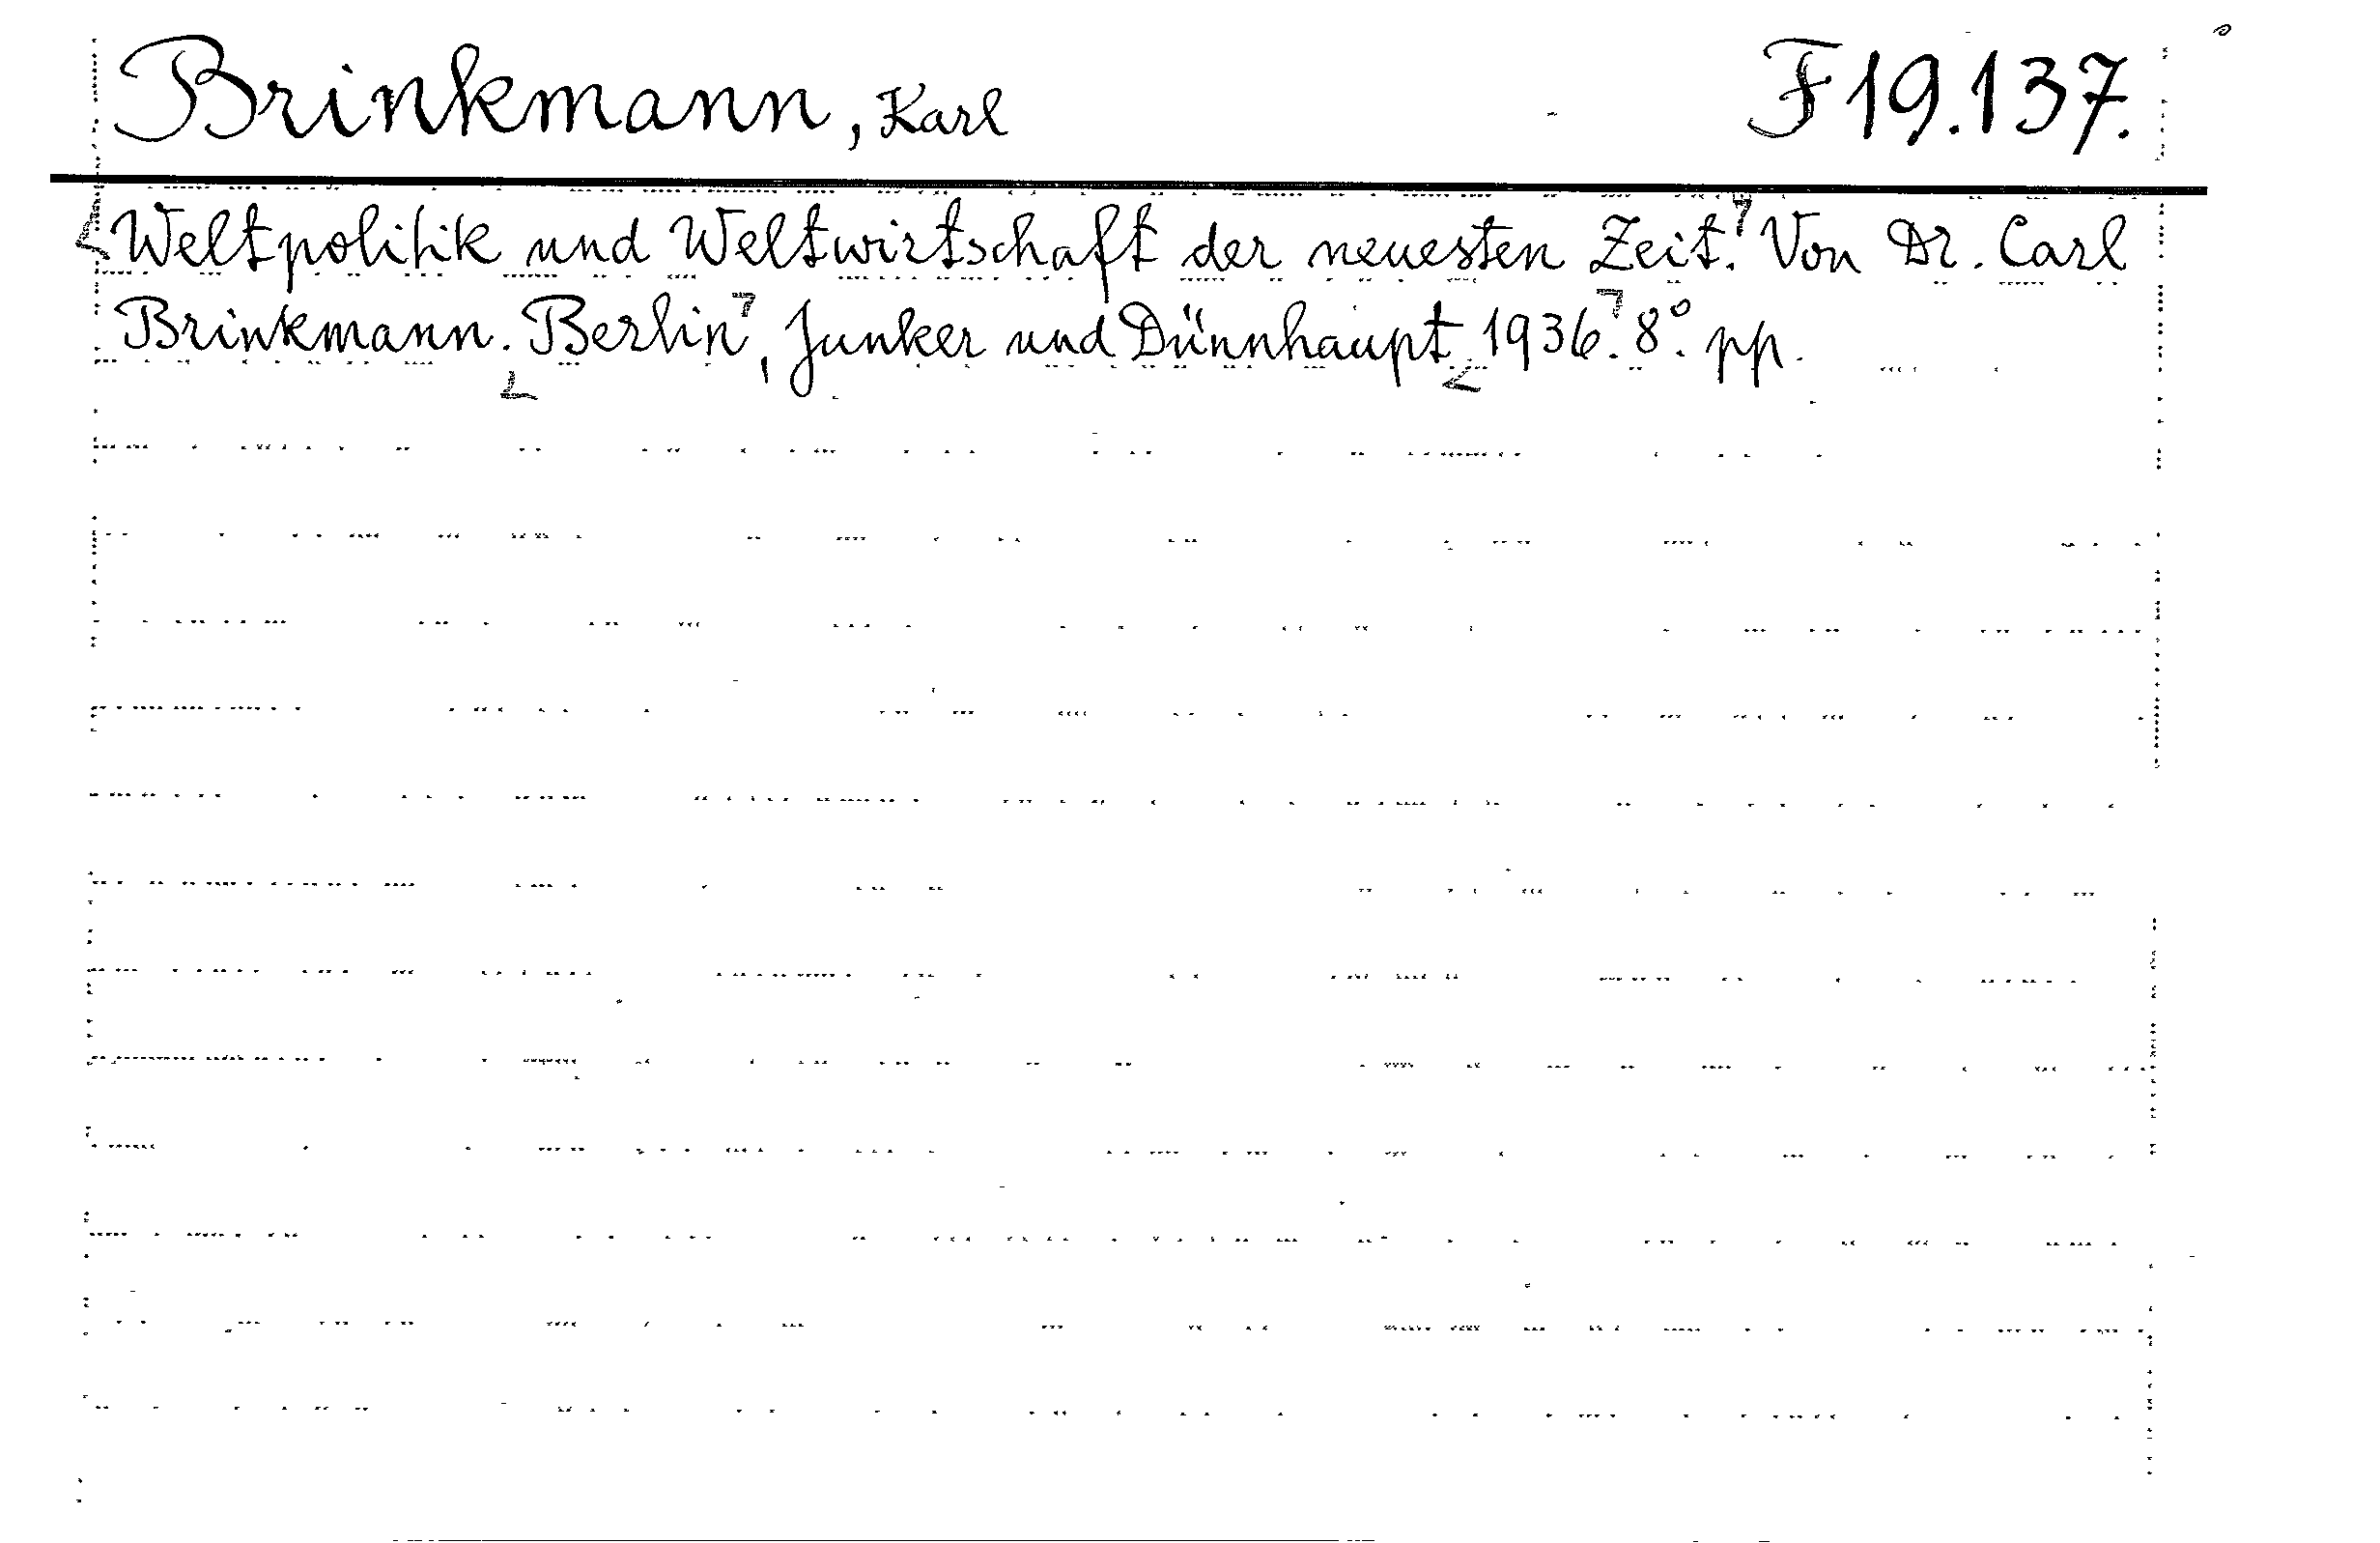 Brinkmann, Karl F19.137.
Weltpolitik und Weltwirtschaft der neuesten Zeit. Von Dr. Carl
Brinkmann. Berlin, Junker und Dünnhaupt 1936. 8°. pp.